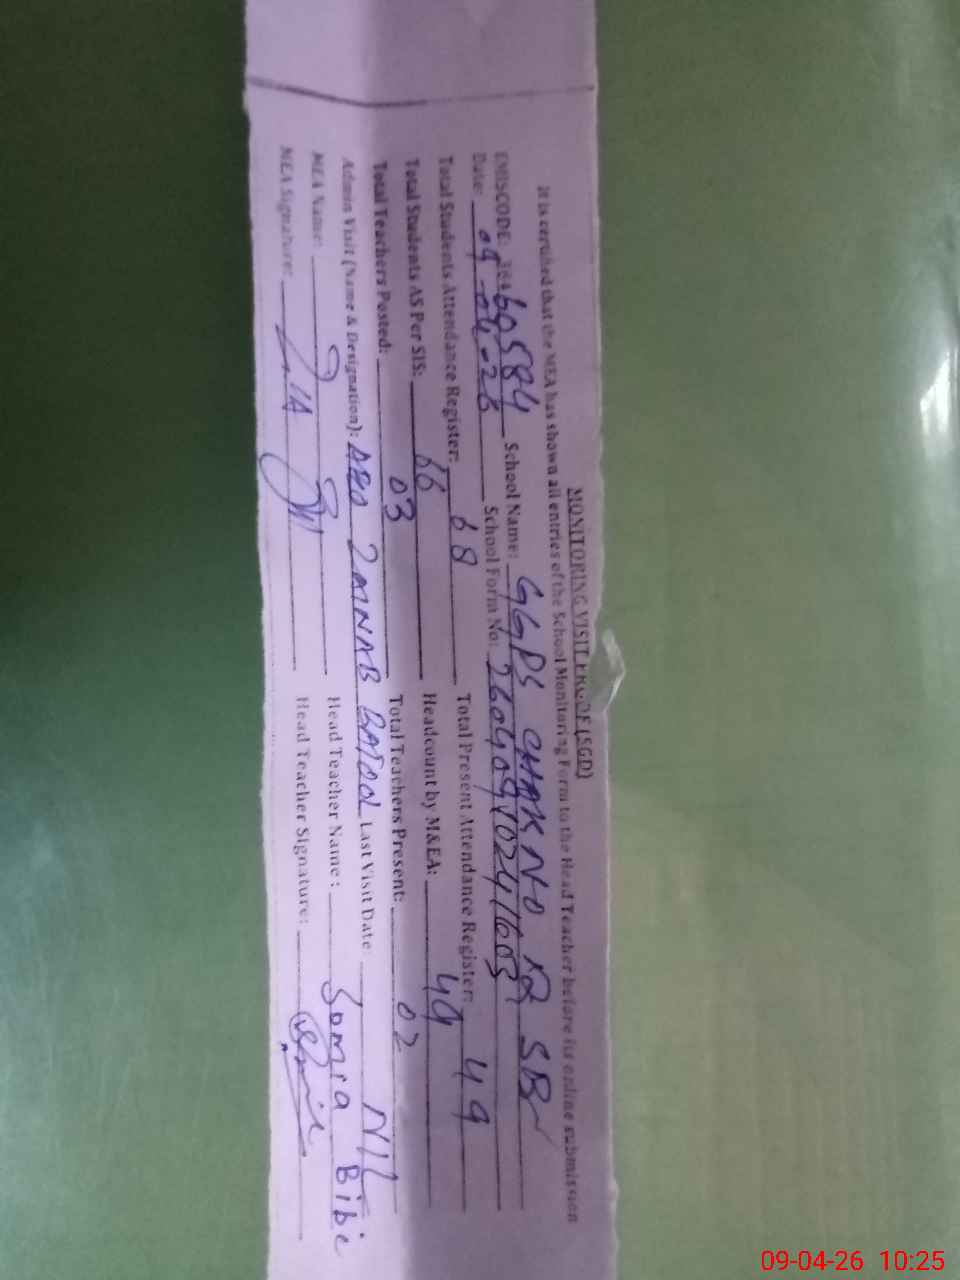 MONITORING VISIT PROOF (SGD)
It is certified that the MEA has shown all entries of the School Monitoring Form to the Head Teacher before its online submission
EMISCODE: 38460584 School Name: GGPS CHAK NO 12 SB
Date: 09-04-26 School Form No: 260409102411605
Total Students Attendance Register: 68 Total Present Attendance Register: 49
Total Students AS Per SIS: 66 Headcount by M&EA: 49
Total Teachers Posted: 03 Total Teachers Present: 02
Admin Visit (Name & Designation): ZAINAB BATOOL Last Visit Date: NIL
MEA Name: Head Teacher Name: Somra Bibi
MEA Signature: Head Teacher Signature:
09-04-26 10:25